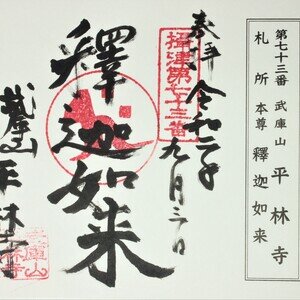 第七十三番 武庫山 平林寺
札所 本尊 釋迦如来
奉拝 令和二年九月三日
摂津第七十三番
釋迦如来
武庫山 平林寺